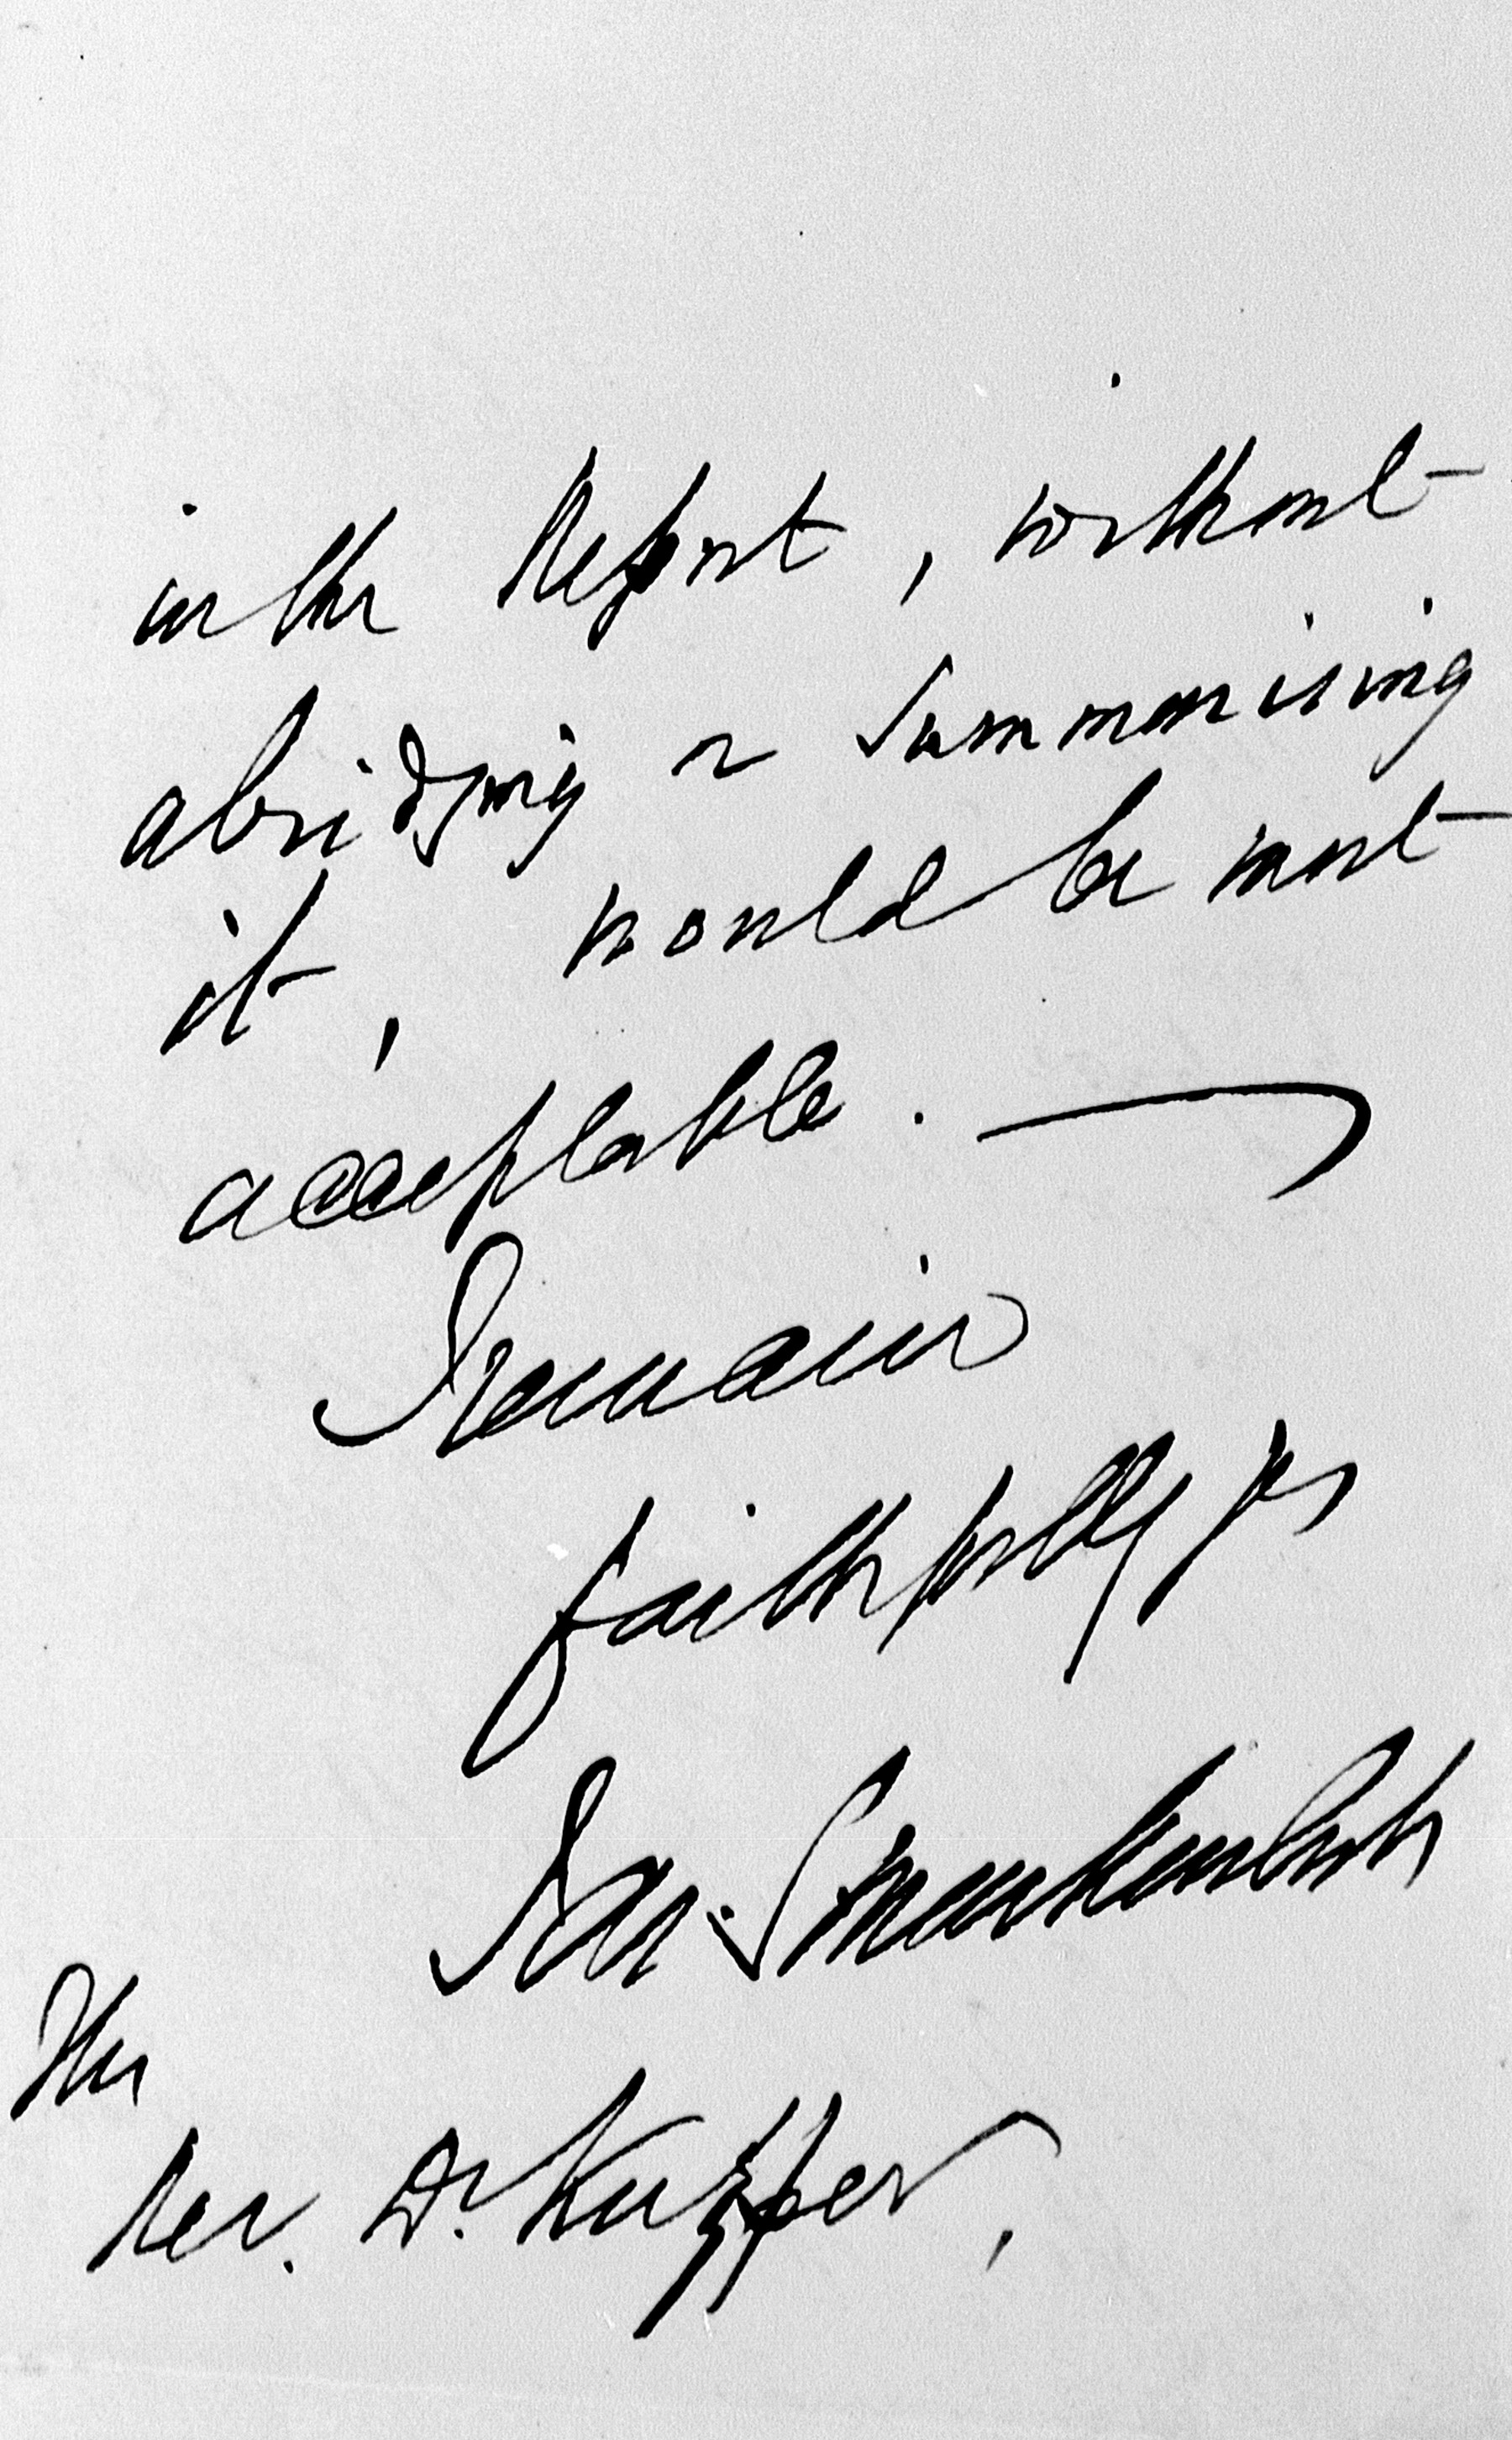 in the Report, without
abridging or summarising
it, would be most
acceptable. —
I remain
faithfully yrs
The
Rev. Dr. Kupper,